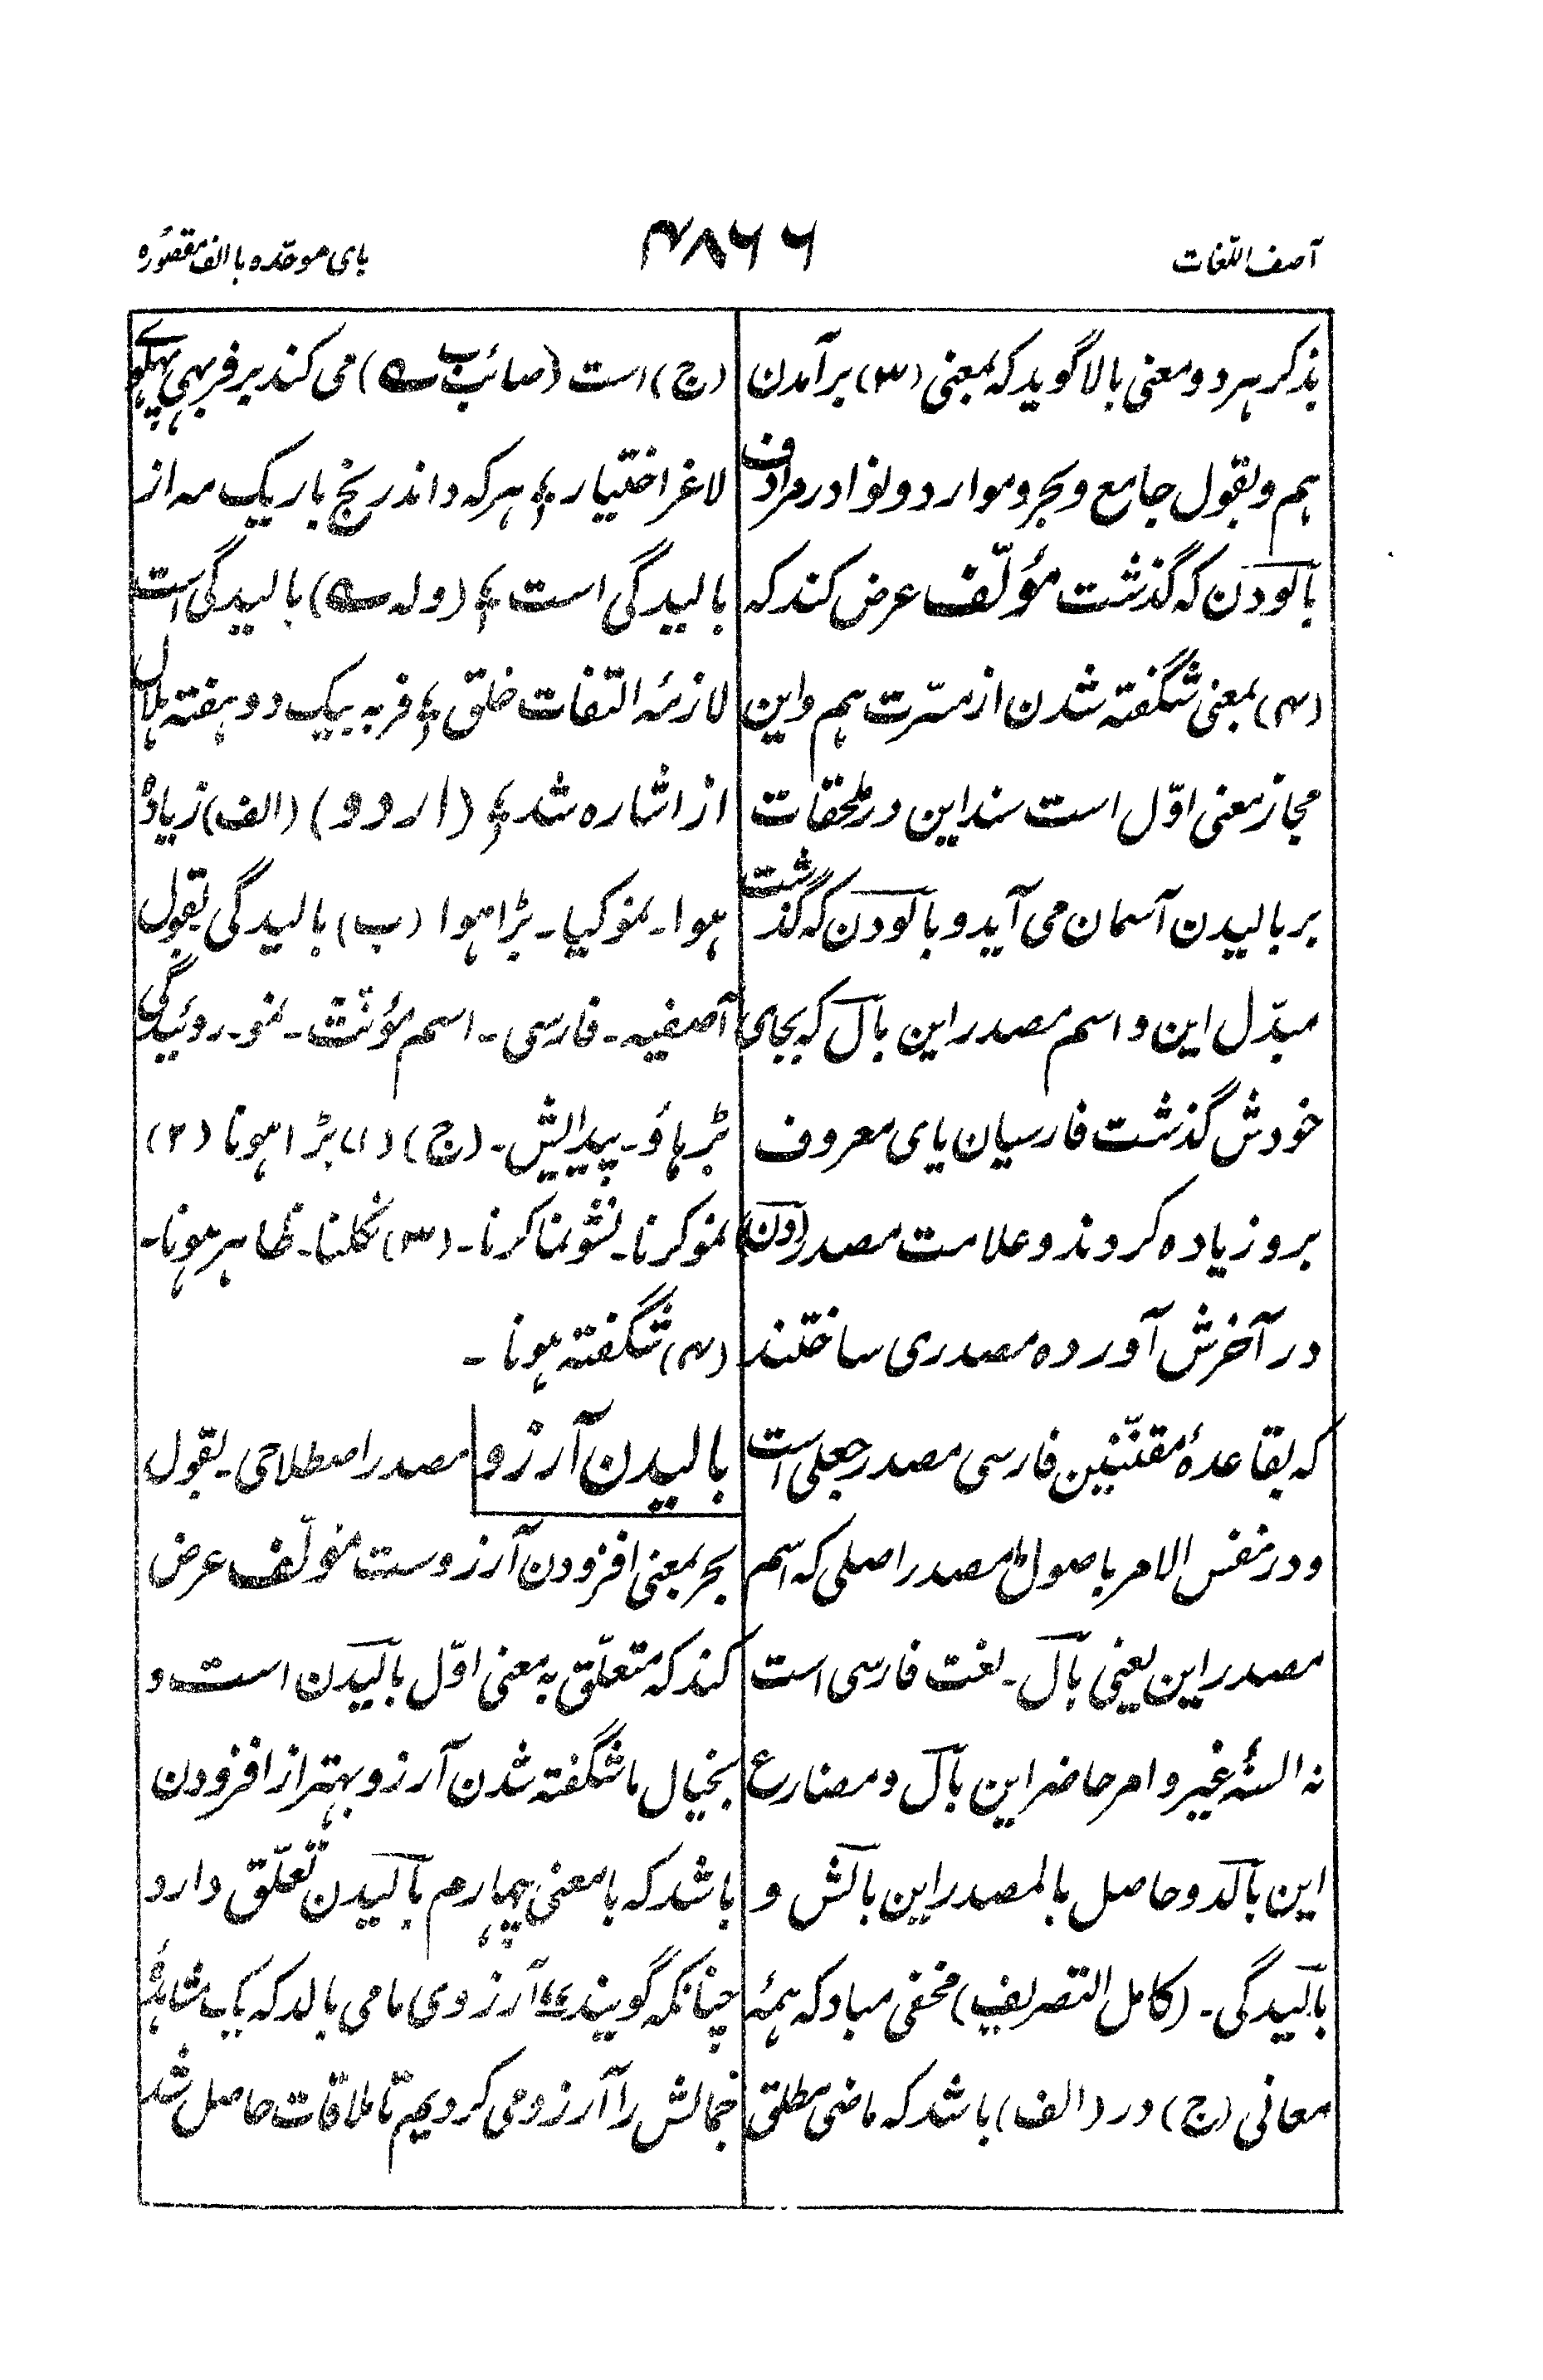 آصف اللّغات
۴۸۶۶
بای موحّده با الف مقصُوره
بذکر هر دو معنی بالا گوید که بمعنی (۳) برآمدن
هم و بقول جامع و بحر و موارد و نوادر مرادف
بالودن که گذشت مؤلّف عرض کند که
(۴) بمعنی شگفته شدن از مسرّت هم و این
مجاز معنی اوّل است سند این در ملحقات
بر بالیدن آسمان می آید و بالودن که گذشت
مبدّل این و اسم مصدر این بال که بجای
خودش گذشت فارسیان یای معروف
برو زیاده کردند و علامت مصدر (دن)
در آخرش آورده مصدری ساختند
که بقاعدۀ مقنّنین فارسی مصدر جعلی است
و در نفس الامر باصول ما مصدر اصلی که اسم
مصدر این یعنی بال ۔ لغت فارسی است
نه السنۂ غیر و امر حاضر این بال و مضارع
این بالد و حاصل بالمصدر این بالش و
بالیدگی ۔ (کامل التصریف) مخفی مباد که همۂ
معانی (ج) در (الف) باشد که ماضی مطلق
(ج) است (صائب ؎) می کند بر فربهی پهلوے
لاغر اختیار ؛ هر که داند رنج باریک مه از
بالیدگی است ؛ (وله ؎) بالیدگی است
لازمۂ التفات خلق ؛ فربه بیک دو هفته هلال
از اشاره شد ؛ (اردو) (الف) زیادہ
ہوا ۔ نمو کیا ۔ بڑا ہوا (ب) بالیدگی بقول
آصفیہ ۔ فارسی ۔ اسم مؤنّث ۔ نمو ۔ روئیدگی
بڑہاؤ ۔ پیدایش ۔ (ج) (۱) بڑا ہونا (۲)
نمو کرنا ۔ نشو نما کرنا ۔ (۳) نکلنا ۔ ظاہر ہونا ۔
(۴) شگفتہ ہونا ۔
بالیدن آرزو مصدر اصطلاحی ۔ بقول
بحر بمعنی افزودن آرزوست مؤلّف عرض
کند که متعلّق به معنی اوّل بالیدن است و
بخیال ما شگفته شدن آرزو بهتر از افزودن
باشد که با معنی چهارم بالیدن تعلّق دارد
چنانکه گویند "آرزوی ما می بالد که یک مشاهدۂ
جمالش را آرزو می کردیم تا ملاقات حاصل شد